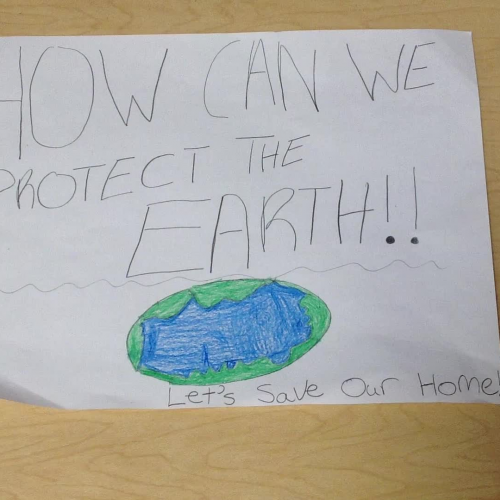 HOW CAN WE
PROTECT THE
EARTH!!
Let's Save Our Home!